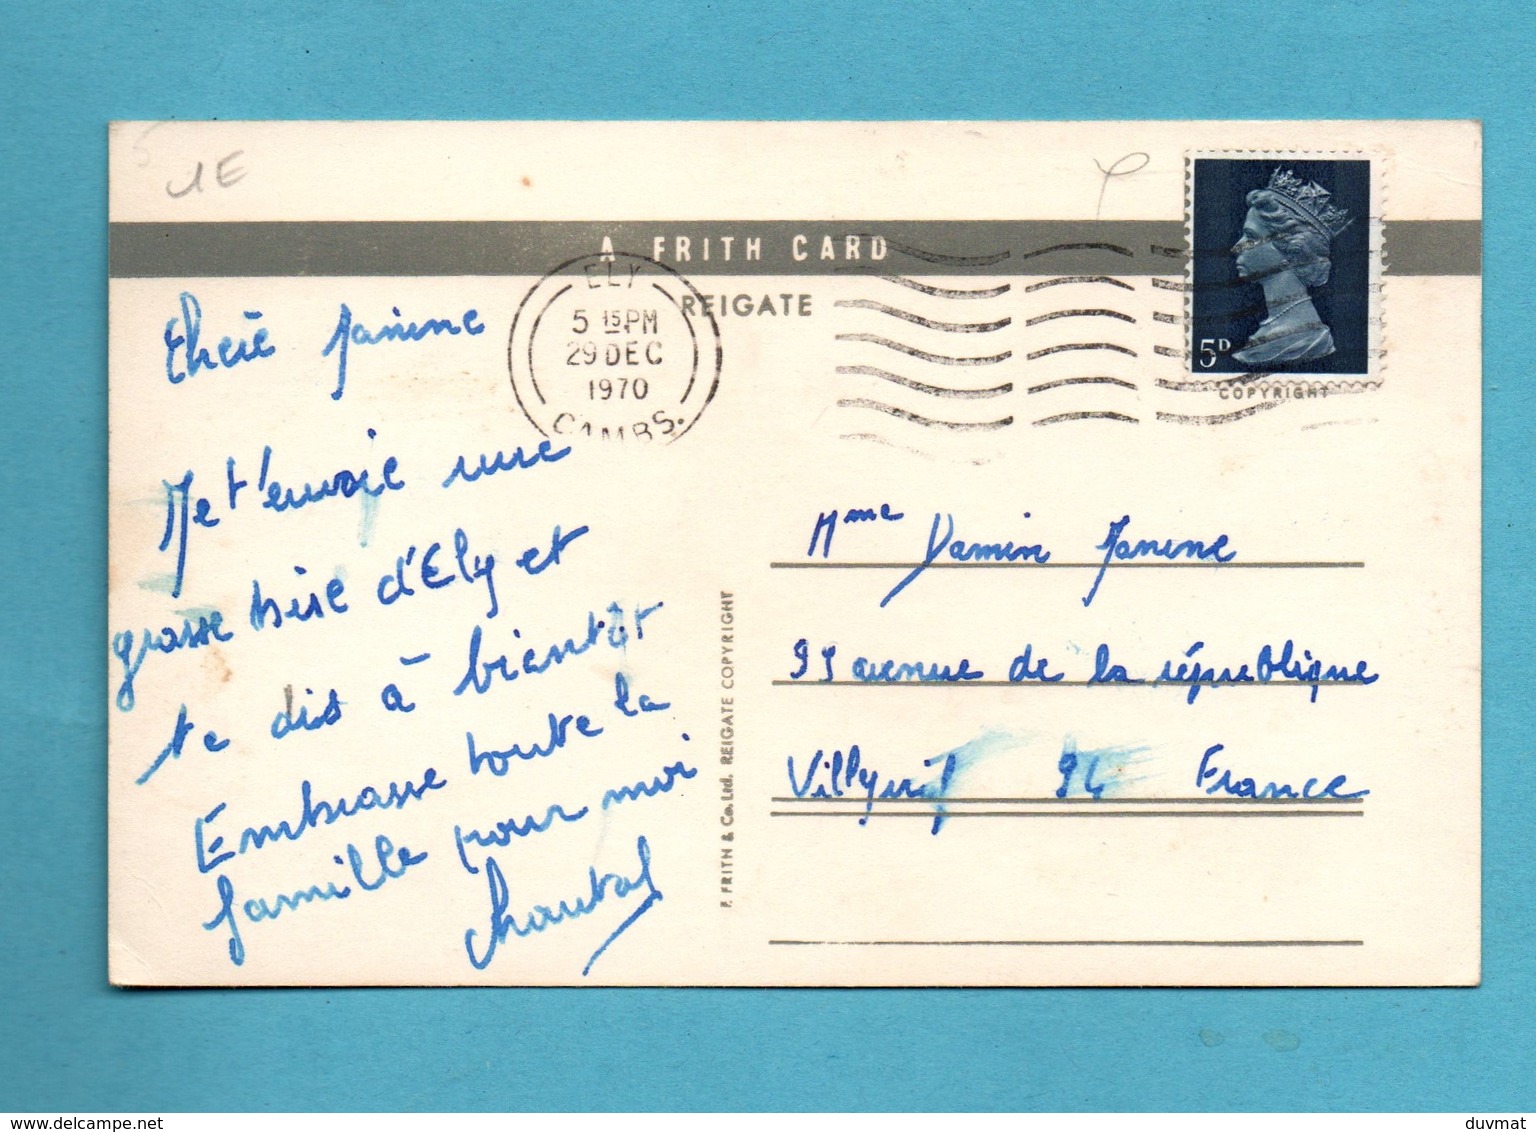 1E
A FRITH CARD
REIGATE
ELY
5 15 PM
29 DEC
1970
CAMBS.
5D
COPYRIGHT
Chère Janine
Je t'envoie une
grosse bise d'Ely et
te dis à bientôt
Embrasse toute la
famille pour moi
Chantal
F. FRITH & Co. Ltd. REIGATE COPYRIGHT
Mme Damin Janine
avenue de la république
Villejuif 94 France
www.delcampe.net
duvmat